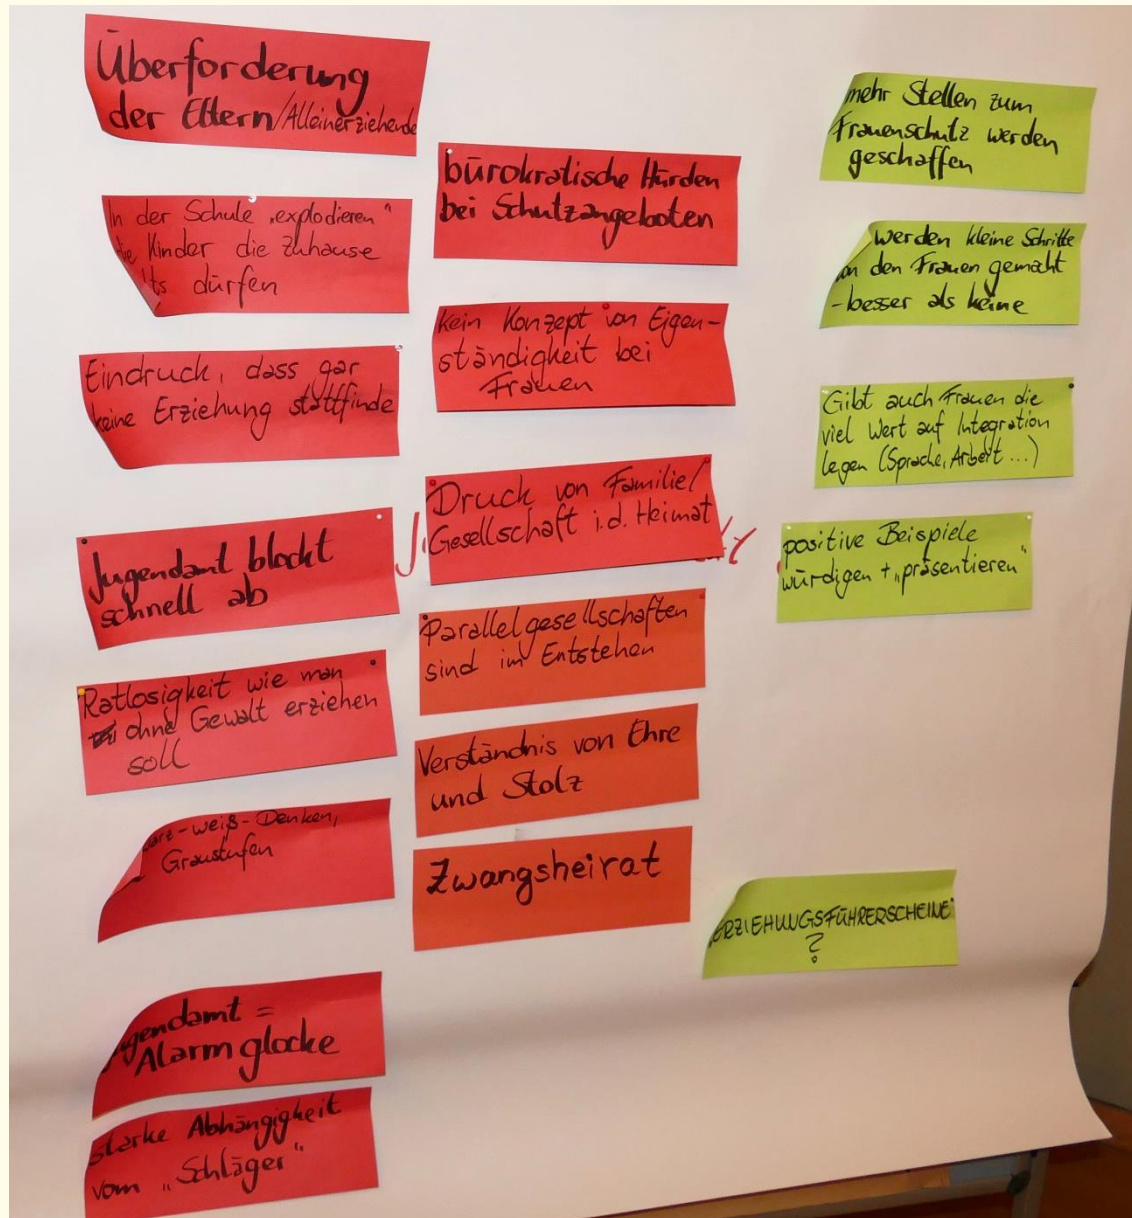 Überforderung
der Eltern/Alleinerziehende
In der Schule „explodieren"
die Kinder die Zuhause
ts dürfen
Eindruck, dass gar
keine Erziehung stattfinde
Jugendamt blockt
schnell ab
Ratlosigkeit wie man
ohne Gewalt erziehen
soll
arz-weiß-Denken,
Graustufen
gendamt =
Alarmglocke
starke Abhängigkeit
vom „Schläger"
bürokratische Hürden
bei Schutzangeboten
kein Konzept von Eigen-
ständigkeit bei
Frauen
Druck von Familie/
Gesellschaft i.d. Heimat
Parallelgesellschaften
sind im Entstehen
Verständnis von Ehre
und Stolz
Zwangsheirat
mehr Stellen zum
Frauenschutz werden
geschaffen
werden kleine Schritte
von den Frauen gemacht
- besser als keine
Gibt auch Frauen die
viel Wert auf Integration
legen (Sprache, Arbeit ...)
positive Beispiele
würdigen + „präsentieren"
„ERZIEHUNGSFÜHRERSCHEINE"
?